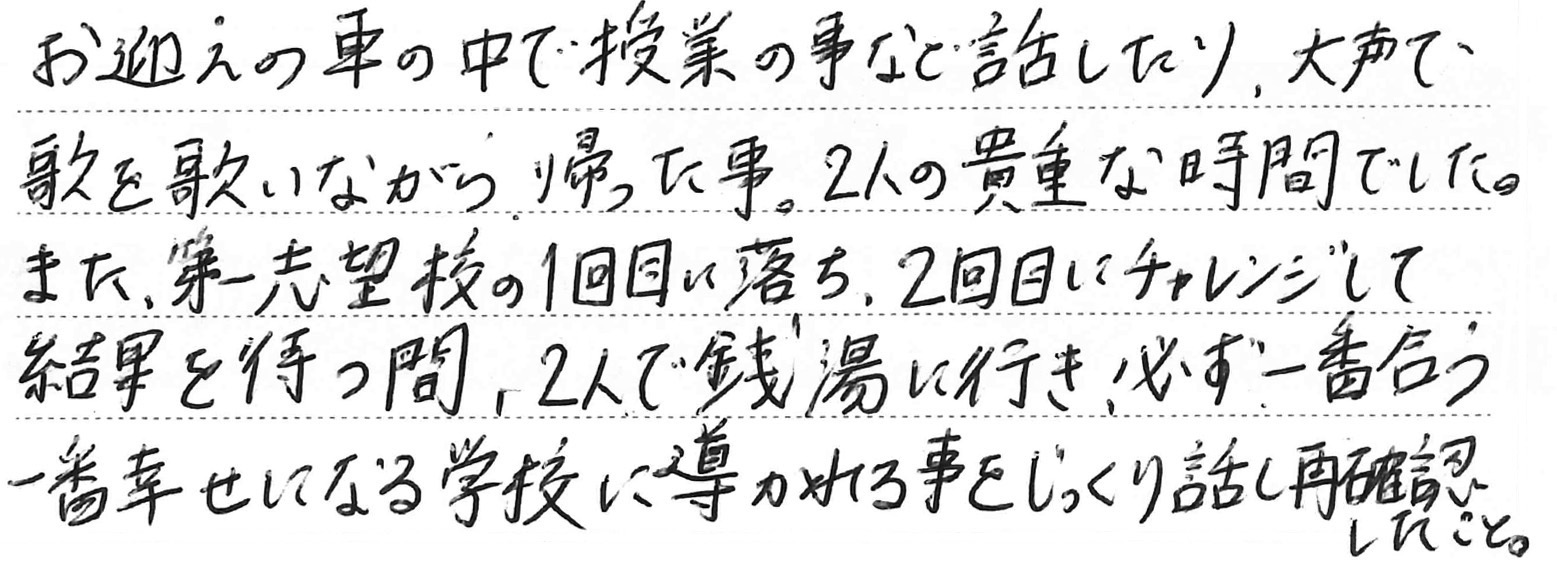 お迎えの車の中で授業の事など話したり、大声で
歌を歌いながら帰った事。2人の貴重な時間でした。
また、第一志望校の1回目に落ち、2回目にチャレンジして
結果を待つ間、2人で銭湯に行き、必ず一番合う
一番幸せになる学校に導かれる事をじっくり話し再確認
したこと。